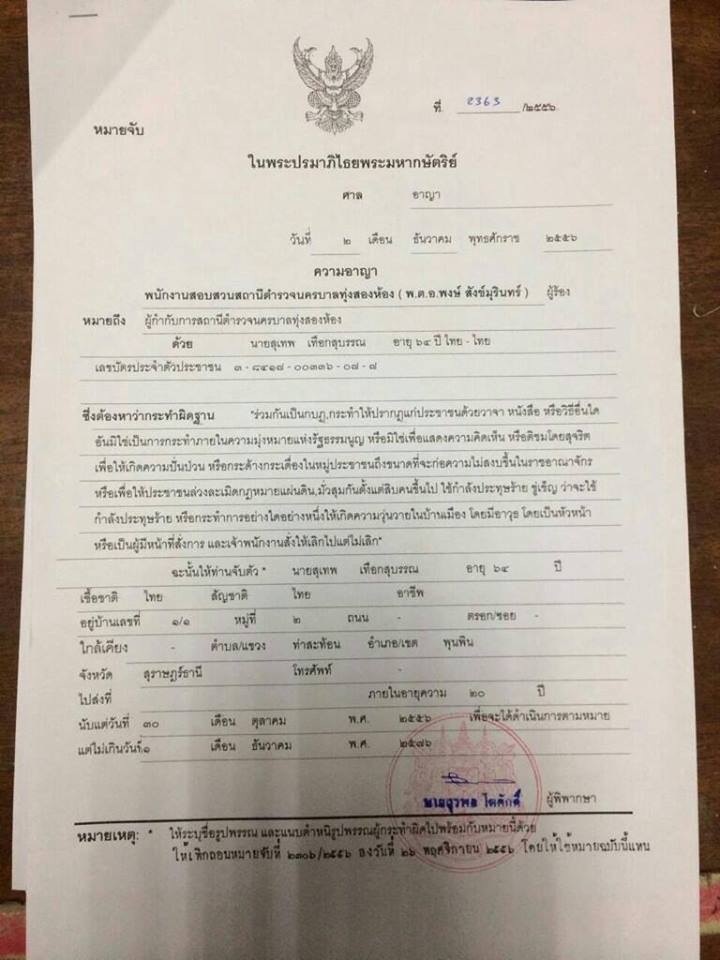 ที่ 2363 /๒๕๕๖
หมายจับ
ในพระปรมาภิไธยพระมหากษัตริย์
ศาล อาญา
วันที่ ๒ เดือน ธันวาคม พุทธศักราช ๒๕๕๖
ความอาญา
พนักงานสอบสวนสถานีตำรวจนครบาลทุ่งสองห้อง ( พ.ต.อ.พงษ์ สังข์มุรินทร์ ) ผู้ร้อง
หมายถึง ผู้กำกับการสถานีตำรวจนครบาลทุ่งสองห้อง
ด้วย นายสุเทพ เทือกสุบรรณ อายุ ๖๔ ปี ไทย - ไทย
เลขบัตรประจำตัวประชาชน ๓ - ๘๔๑๗ - ๐๐๓๓๖ - ๐๗ - ๗
ซึ่งต้องหาว่ากระทำผิดฐาน "ร่วมกันเป็นกบฏ,กระทำให้ปรากฏแก่ประชาชนด้วยวาจา หนังสือ หรือวิธีอื่นใด
อันมิใช่เป็นการกระทำภายในความมุ่งหมายแห่งรัฐธรรมนูญ หรือมิใช่เพื่อแสดงความคิดเห็น หรือติชมโดยสุจริต
เพื่อให้เกิดความปั่นป่วน หรือกระด้างกระเดื่องในหมู่ประชาชนถึงขนาดที่จะก่อความไม่สงบขึ้นในราชอาณาจักร
หรือเพื่อให้ประชาชนล่วงละเมิดกฎหมายแผ่นดิน,มั่วสุมกันตั้งแต่สิบคนขึ้นไป ใช้กำลังประทุษร้าย ขู่เข็ญ ว่าจะใช้
กำลังประทุษร้าย หรือกระทำการอย่างใดอย่างหนึ่งให้เกิดความวุ่นวายในบ้านเมือง โดยมีอาวุธ โดยเป็นหัวหน้า
หรือเป็นผู้มีหน้าที่สั่งการ และเจ้าพนักงานสั่งให้เลิกไปแต่ไม่เลิก"
ฉะนั้นให้ท่านจับตัว * นายสุเทพ เทือกสุบรรณ อายุ ๖๔ ปี
เชื้อชาติ ไทย สัญชาติ ไทย อาชีพ
อยู่บ้านเลขที่ ๑/๑ หมู่ที่ ๒ ถนน - ตรอก/ซอย -
ใกล้เคียง - ตำบล/แขวง ท่าสะท้อน อำเภอ/เขต พุนพิน
จังหวัด สุราษฎร์ธานี โทรศัพท์ -
ไปส่งที่ ภายในอายุความ ๒๐ ปี
นับแต่วันที่ ๓๐ เดือน ตุลาคม พ.ศ. ๒๕๕๖ เพื่อจะได้ดำเนินการตามหมาย
แต่ไม่เกินวันที่ ๑ เดือน ธันวาคม พ.ศ. ๒๕๗๖
ผู้พิพากษา
หมายเหตุ: * ให้ระบุชื่อรูปพรรณ และแนบตำหนิรูปพรรณผู้กระทำผิดไปพร้อมกับหมายนี้ด้วย
ให้เพิกถอนหมายจับที่ ๒๓๐๖/๒๕๕๖ ลงวันที่ ๒๖ พฤศจิกายน ๒๕๕๖ โดยให้ใช้หมายฉบับนี้แทน